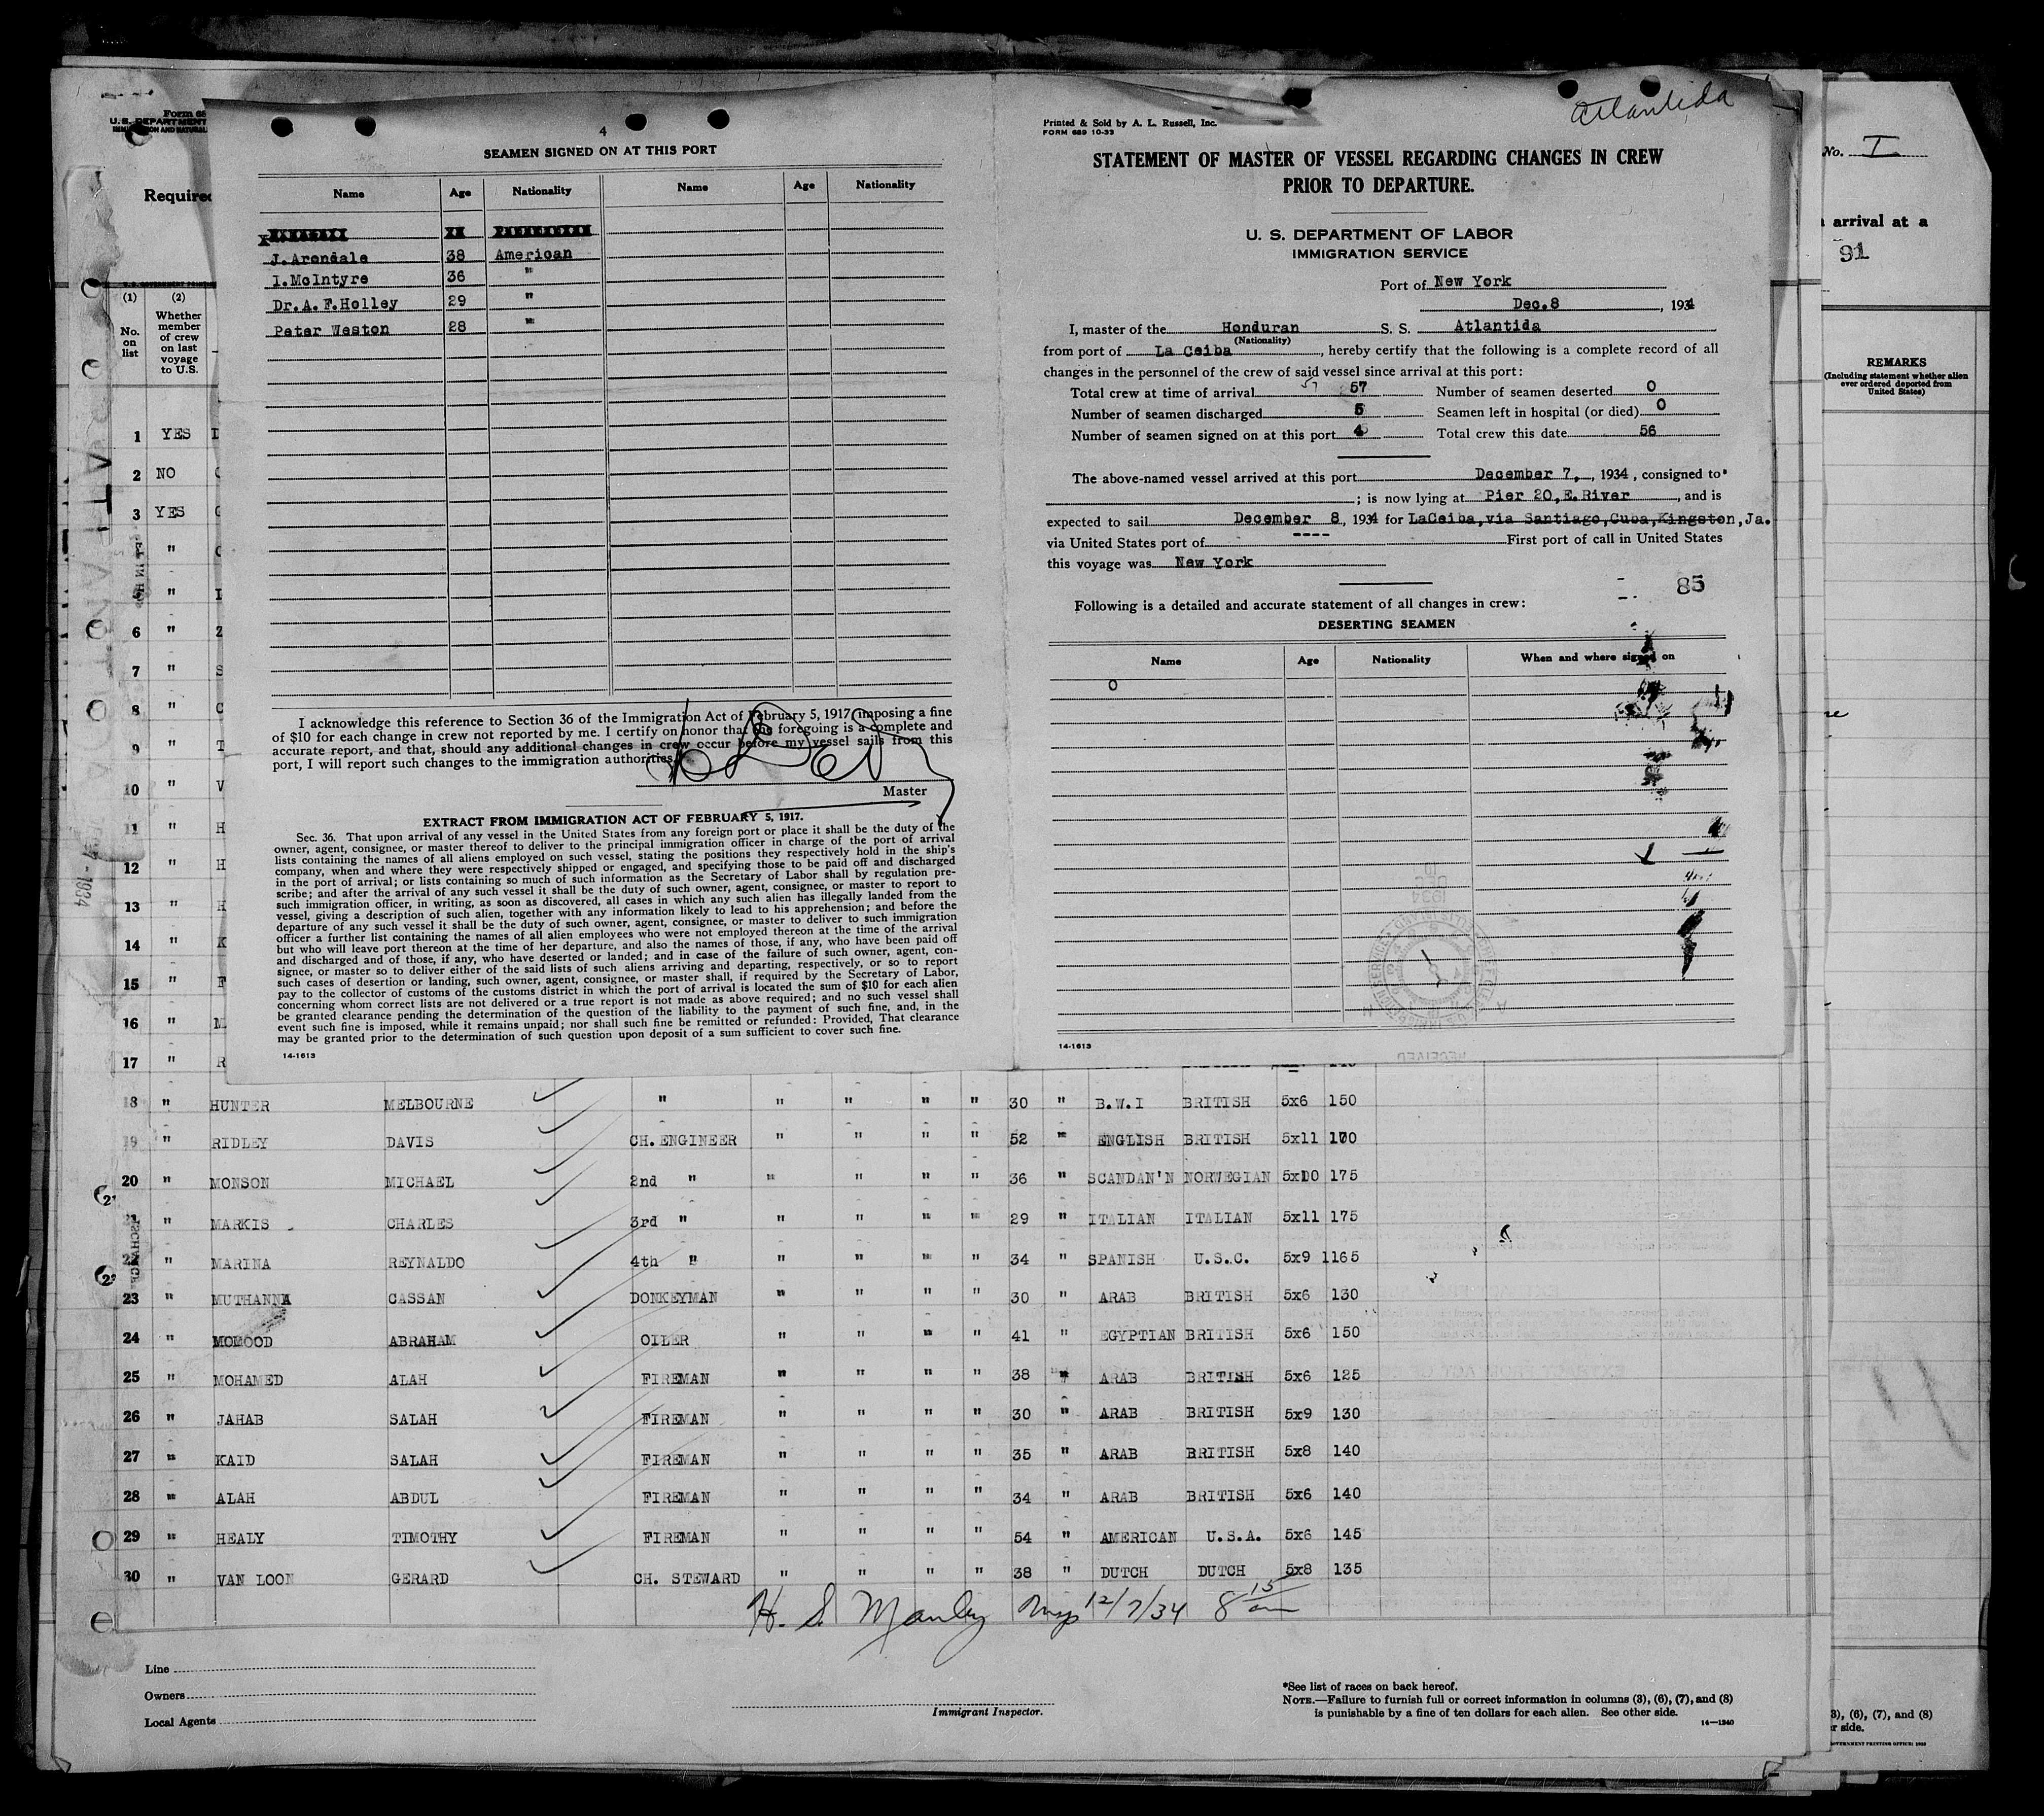 Form 68
U. S. DEPARTMENT
Required
4
SEAMEN SIGNED ON AT THIS PORT
Name Age Nationality Name Age Nationality
J.Arondale 38 American
I.McIntyre 36 "
Dr.A.F.Holley 29 "
Peter Weston 28 "
I acknowledge this reference to Section 36 of the Immigration Act of February 5, 1917, imposing a fine
of $10 for each change in crew not reported by me. I certify on honor that the foregoing is a complete and
accurate report, and that, should any additional changes in crew occur before my vessel sails from this
port, I will report such changes to the immigration authorities.
Master
EXTRACT FROM IMMIGRATION ACT OF FEBRUARY 5, 1917.
Sec. 36. That upon arrival of any vessel in the United States from any foreign port or place it shall be the duty of the
owner, agent, consignee, or master thereof to deliver to the principal immigration officer in charge of the port of arrival
lists containing the names of all aliens employed on such vessel, stating the positions they respectively hold in the ship's
company, when and where they were respectively shipped or engaged, and specifying those to be paid off and discharged
in the port of arrival; or lists containing so much of such information as the Secretary of Labor shall by regulation pre-
scribe; and after the arrival of any such vessel it shall be the duty of such owner, agent, consignee, or master to report to
such immigration officer, in writing, as soon as discovered, all cases in which any such alien has illegally landed from the
vessel, giving a description of such alien, together with any information likely to lead to his apprehension; and before the
departure of any such vessel it shall be the duty of such owner, agent, consignee, or master to deliver to such immigration
officer a further list containing the names of all alien employees who were not employed thereon at the time of the arrival
but who will leave port thereon at the time of her departure, and also the names of those, if any, who have been paid off
and discharged and of those, if any, who have deserted or landed; and in case of the failure of such owner, agent, con-
signee, or master so to deliver either of the said lists of such aliens arriving and departing, respectively, or so to report
such cases of desertion or landing, such owner, agent, consignee, or master shall, if required by the Secretary of Labor,
pay to the collector of customs of the customs district in which the port of arrival is located the sum of $10 for each alien
concerning whom correct lists are not delivered or a true report is not made as above required; and no such vessel shall
be granted clearance pending the determination of the question of the liability to the payment of such fine, and, in the
event such fine is imposed, while it remains unpaid; nor shall such fine be remitted or refunded: Provided, That clearance
may be granted prior to the determination of such question upon deposit of a sum sufficient to cover such fine.
14-1613
Atlantida
Printed & Sold by A. L. Russell, Inc.
FORM 689 10-33
STATEMENT OF MASTER OF VESSEL REGARDING CHANGES IN CREW
PRIOR TO DEPARTURE.
U. S. DEPARTMENT OF LABOR
IMMIGRATION SERVICE
Port of New York
Dec.8, 1934
I, master of the Honduran S. S. Atlantida
(Nationality)
from port of La Ceiba, hereby certify that the following is a complete record of all
changes in the personnel of the crew of said vessel since arrival at this port:
Total crew at time of arrival 57 57 Number of seamen deserted 0
Number of seamen discharged 5 Seamen left in hospital (or died) 0
Number of seamen signed on at this port 4 Total crew this date 56
The above-named vessel arrived at this port December 7, , 1934, consigned to
; is now lying at Pier 20,E.River, and is
expected to sail December 8, 1934 for LaCeiba,via Santiago,Cuba,Kingston,Ja.
via United States port of ---- First port of call in United States
this voyage was New York
85
Following is a detailed and accurate statement of all changes in crew:
DESERTING SEAMEN
Name Age Nationality When and where signed on
0
14-1613
RECEIVED
No. I
arrival at a
91
REMARKS
(Including statement whether alien
ever ordered deported from
United States)
(1) (2)
No. on list
Whether member of crew on last voyage to U.S.
1 YES
2 NO
3 YES
"
"
6 "
7 "
8 "
9 "
10 "
11 "
12 "
13 "
14 "
15 "
16 "
17 "
18 " HUNTER MELBOURNE " " " " " 30 " B.W.I BRITISH 5x6 150
19 " RIDLEY DAVIS CH.ENGINEER " " " " 52 " ENGLISH BRITISH 5x11 170
20 " MONSON MICHAEL 2nd " " " " " 36 " SCANDAN'N NORWEGIAN 5x10 175
21 " MARKIS CHARLES 3rd " " " " " 29 " ITALIAN ITALIAN 5x11 175
22 " MARINA REYNALDO 4th " " " " " 34 " SPANISH U.S.C. 5x9 1165
23 " MUTHANNA CASSAN DONKEYMAN " " " " 30 " ARAB BRITISH 5x6 130
24 " MOMOOD ABRAHAM OILER " " " " 41 " EGYPTIAN BRITISH 5x6 150
25 " MOHAMED ALAH FIREMAN " " " " 38 " ARAB BRITISH 5x6 125
26 " JAHAB SALAH FIREMAN " " " " 30 " ARAB BRITISH 5x9 130
27 " KAID SALAH FIREMAN " " " " 35 " ARAB BRITISH 5x8 140
28 " ALAH ABDUL FIREMAN " " " " 34 " ARAB BRITISH 5x6 140
29 " HEALY TIMOTHY FIREMAN " " " " 54 " AMERICAN U.S.A. 5x6 145
30 " VAN LOON GERARD CH. STEWARD " " " " 38 " DUTCH DUTCH 5x8 135
H. S. Manley Insp 12/7/34 8 15 am
Line
Owners
Local Agents
Immigrant Inspector.
*See list of races on back hereof.
NOTE.—Failure to furnish full or correct information in columns (3), (6), (7), and (8)
is punishable by a fine of ten dollars for each alien. See other side.
14—1240
3), (6), (7), and (8)
r side.